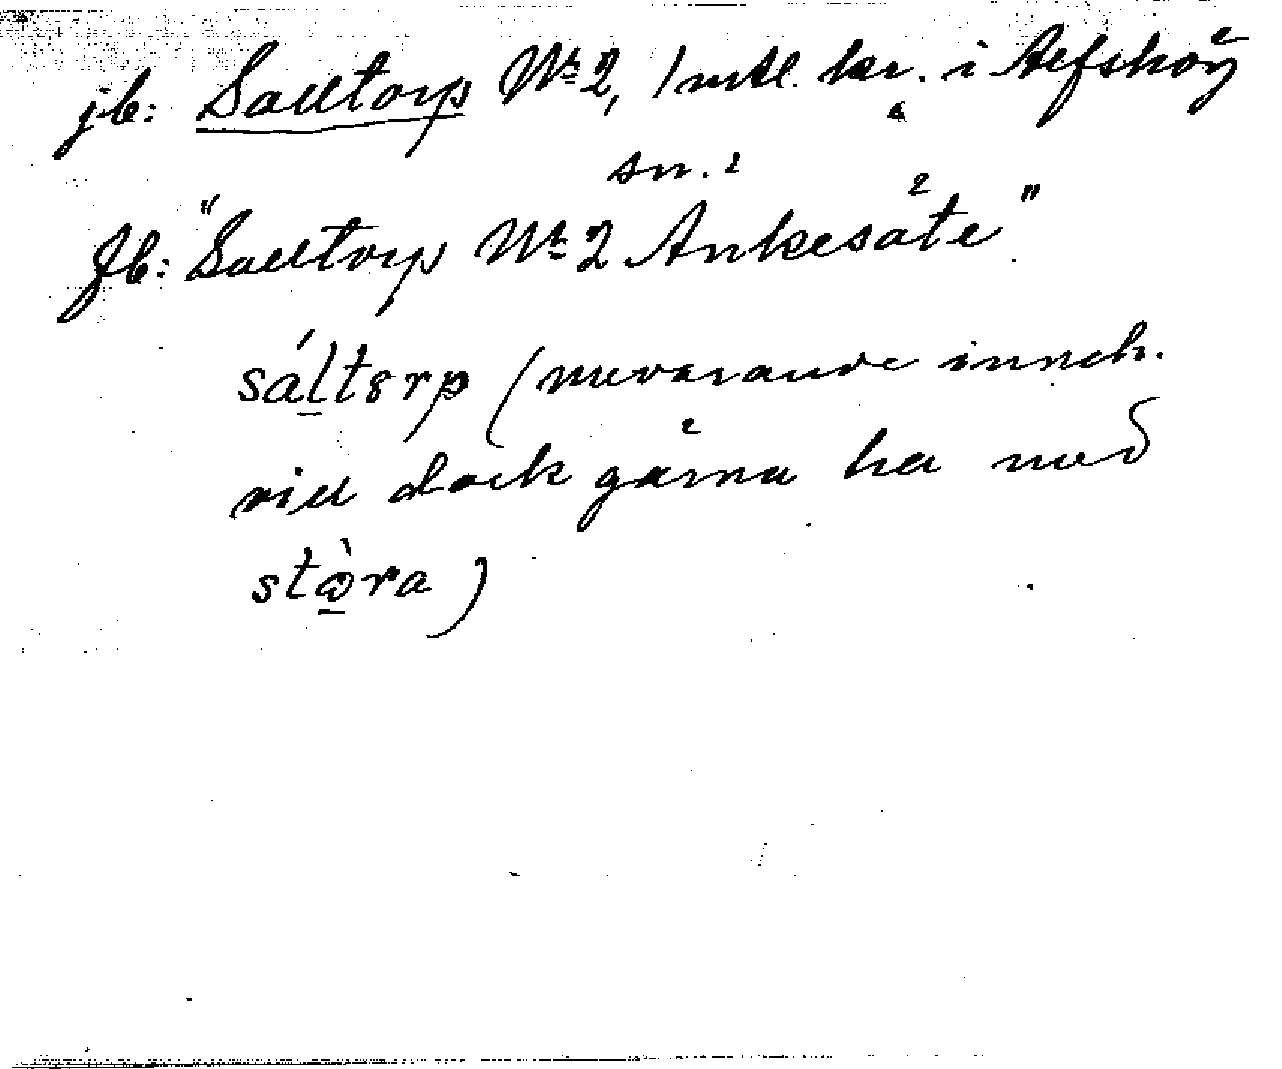 jb: Salltorp No 2, 1 mtl. kr. i Refshög
sn.
Jb: "Salltorp No 2 Ankesäte"
sáltorp (nuvarande inneh.
vill dock gärna ha med
stòra)